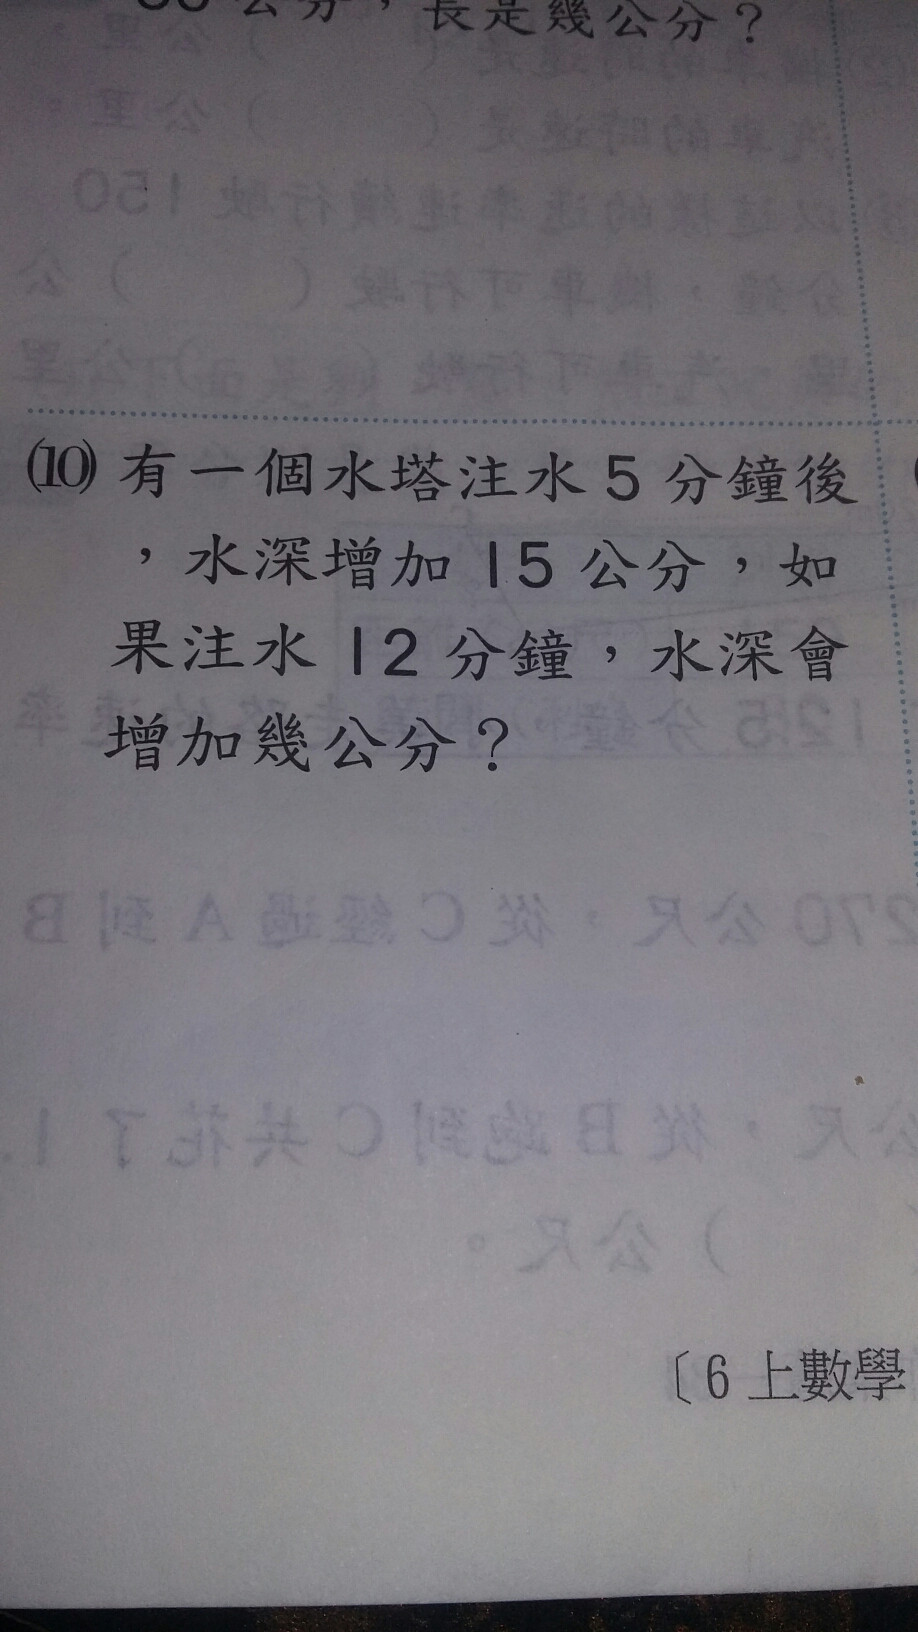 公分，長是幾公分？
⑽ 有一個水塔注水5分鐘後
，水深增加15公分，如
果注水12分鐘，水深會
增加幾公分？
〔6上數學